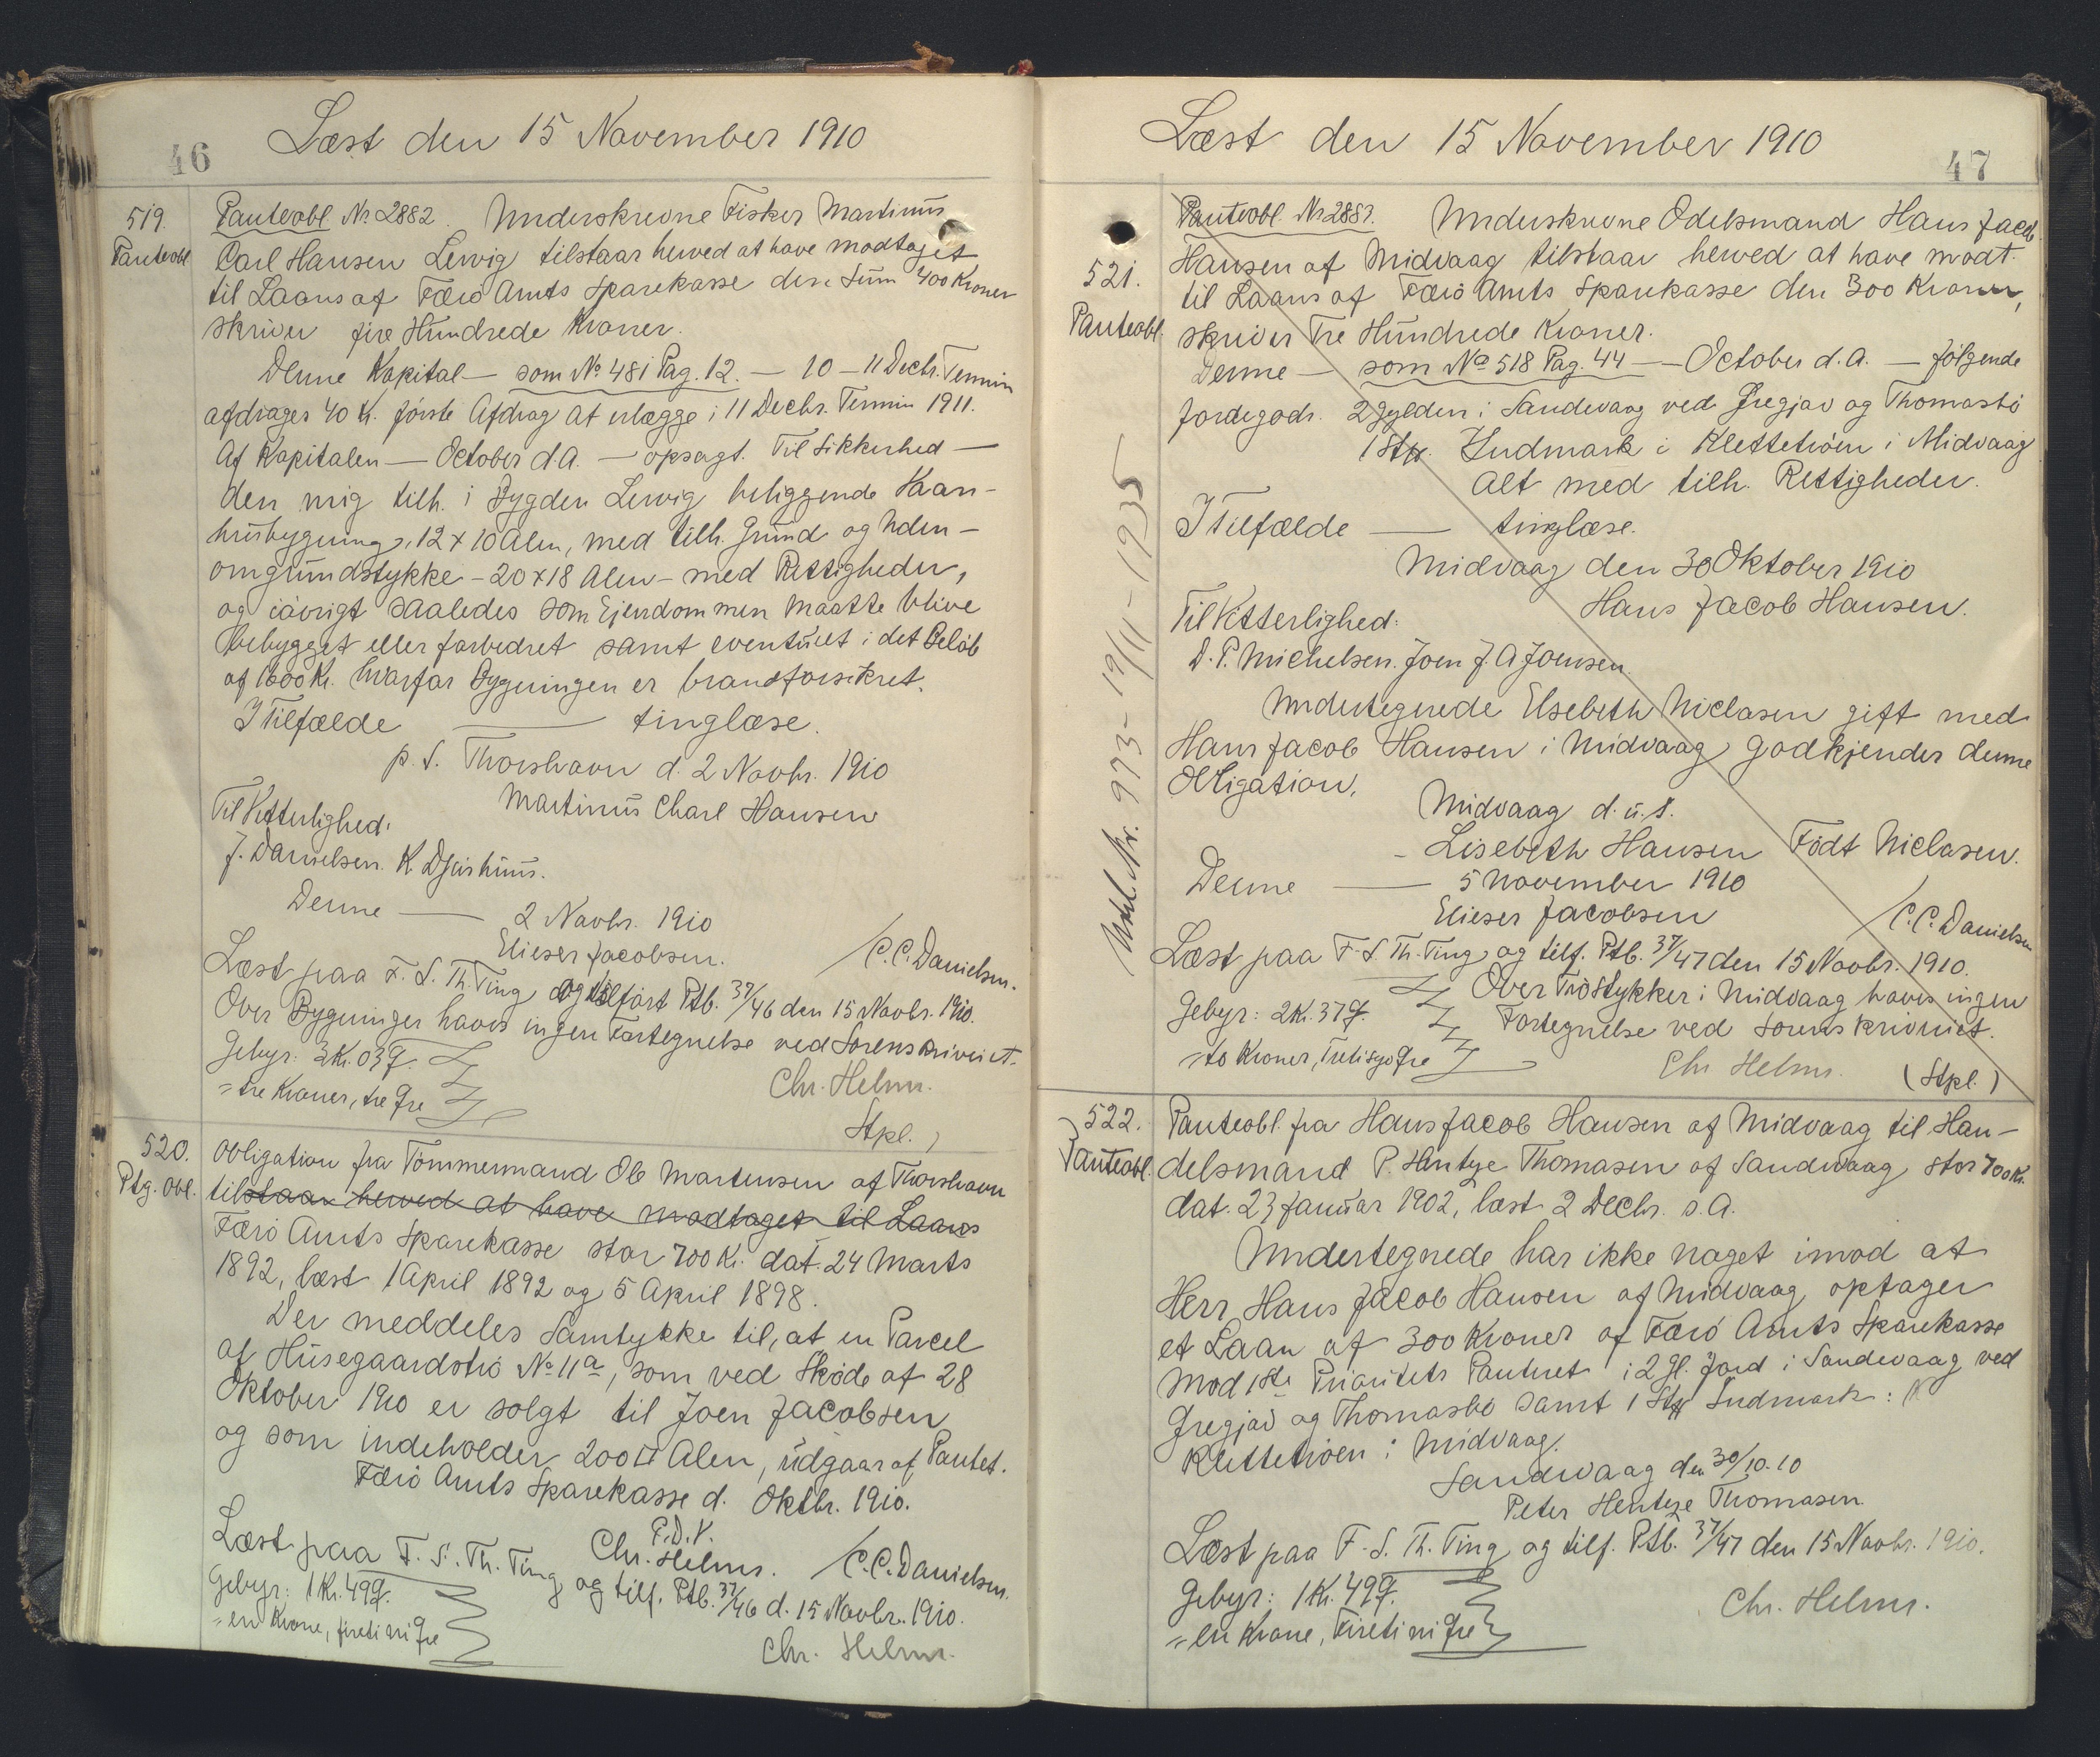 46
Læst den 15 November 1910
519.
Panteobl
Panteobl. № 2882. Underskrevne Fisker Martinus
Carl Hansen Lervig tilstaar herved at have modtaget
til Laans af Færø Amts Sparekasse den Sum 400 Kroner
skriver fire Hundrede Kroner.
Denne Kapital — som № 481 Pag. 12. — 10 – 11 Decbr. Termin
afdrages 40 Kr. første Afdrag at erlægge i 11 Decbr. Termin 1911.
Af Kapitalen — October d.A. — opsagt. Til Sikkerhed —
den mig tilh. i Bygden Lervig beliggende Vaan-
husbygning, 12 x 10 Alen, med tilh. Grund og Uden-
omgrundstykke – 20 x 18 Alen – med Rettigheder,
og iøvrigt saaledes som Ejendommen maatte blive
bebygget eller forbedret samt eventuelt i det Beløb
af 1600 Kr. hvorfor Bygningen er brandforsikret.
I Tilfælde — tinglæse.
p. t. Thorshavn d. 2 Novbr. 1910
Martinus Charl Hansen
Til Vitterlighed:
J. Danielsen. K. Djurhuus.
Denne — 2 Novbr. 1910
Elieser Jacobsen. / C.C. Danielsen.
Læst paa F. S. Th. Ting og tilført Ptb. 37/46 den 15 Novbr. 1910.
Over Bygninger haves ingen Fortegnelse ved Sorenskriveriet.
Gebyr: 3 Kr. 03 Ø.
= tre Kroner, tre Øre
Chr. Helms.
Stpl. )
520.
Ptg. Obl.
Obligation fra Tømmermand Ole Mortensen af Thorshavn
tilstaar herved at have modtaget til Laans
Færø Amts Sparekasse stor 700 Kr. dat. 24 Marts
1892, læst 1 April 1892 og 5 April 1898.
Der meddeles Samtykke til, at en Parcel
af Húsegaardstrø № 11a, som ved Skøde af 28
Oktober 1910 er solgt til Joen Jacobsen
og som indeholder 200 □ Alen, udgaar af Pantet.
Færø Amts Sparekasse d. Oktbr. 1910.
P.D.V.
Chr. Helms. / C.C. Danielsen.
Læst paa F. S. Th. Ting og tilf. Ptb. 37/46 d. 15 Novbr. 1910.
Gebyr: 1 Kr. 49 Ø.
= en Krone, firetini Øre
Chr. Helms.
47
Læst den 15 November 1910
521.
Panteobl.
Panteobl. № 2883. Underskrevne Odelsmand Hans Jacob
Hansen af Midvaag tilstaar herved at have modt.
til Laans af Færø Amts Sparekasse den 300 Kroner,
skriver Tre Hundrede Kroner.
Denne — som № 518 Pag. 44 — October d.A. — følgende
Jordegods. 2 Gylden i Sandevaag ved Gregjav og Thomasbø
1 Stk. Indmark i Klettetrøen i Midvaag
Alt med tilh. Rettigheder.
I Tilfælde — tinglæse.
Midvaag den 30 Oktober 1910
Hans Jacob Hansen.
Til Vitterlighed:
D. P. Michelsen. Joen J. A Joensen.
Undertegnede Elsebeth Niclasen gift med
Hans Jacob Hansen i Midvaag godkjender denne
Obligation.
Midvaag d. u. s.
Lisebeth Hansen Født Niclasen.
Denne — 5 November 1910
Elieser Jacobsen / C.C. Danielsen
Læst paa F. S. Th. Ting og tilf. Ptb. 37/47 den 15 Novbr. 1910.
Over Trøstykker i Midvaag haves ingen
Fortegnelse ved Sorenskriveriet.
Gebyr: 2 Kr. 37 Ø.
= to Kroner, Tretisyv Øre
Chr Helms. (Stpl.)
Udsl. Nr. 973 – 19/11 – 1935
522.
Panteobl.
Panteobl. fra Hans Jacob Hansen af Midvaag til Han-
delsmand P. Hentze Thomasen af Sandevaag stor 700 Kr.
dat. 23 Januar 1902, læst 2 Decbr. s.A.
Undertegnede har ikke noget imod at
Herr Hans Jacob Hansen af Midvaag optager
et Laan af 300 Kroner af Færø Amts Sparekasse
mod 1ste Prioritets Panteret i 2 Gl. Jord i Sandevaag ved
Gregjav og Thomasbø samt 1 Stk Indmark :
Klettetrøen i Midvaag.
Sandevaag den 30/10.10
Peter Hentze Thomasen
Læst paa F. S. Th. Ting og tilf. Ptb. 37/47 den 15 Novbr. 1910.
Gebyr: 1 Kr. 49 Ø.
= en Krone, Firetini Øre
Chr. Helms.